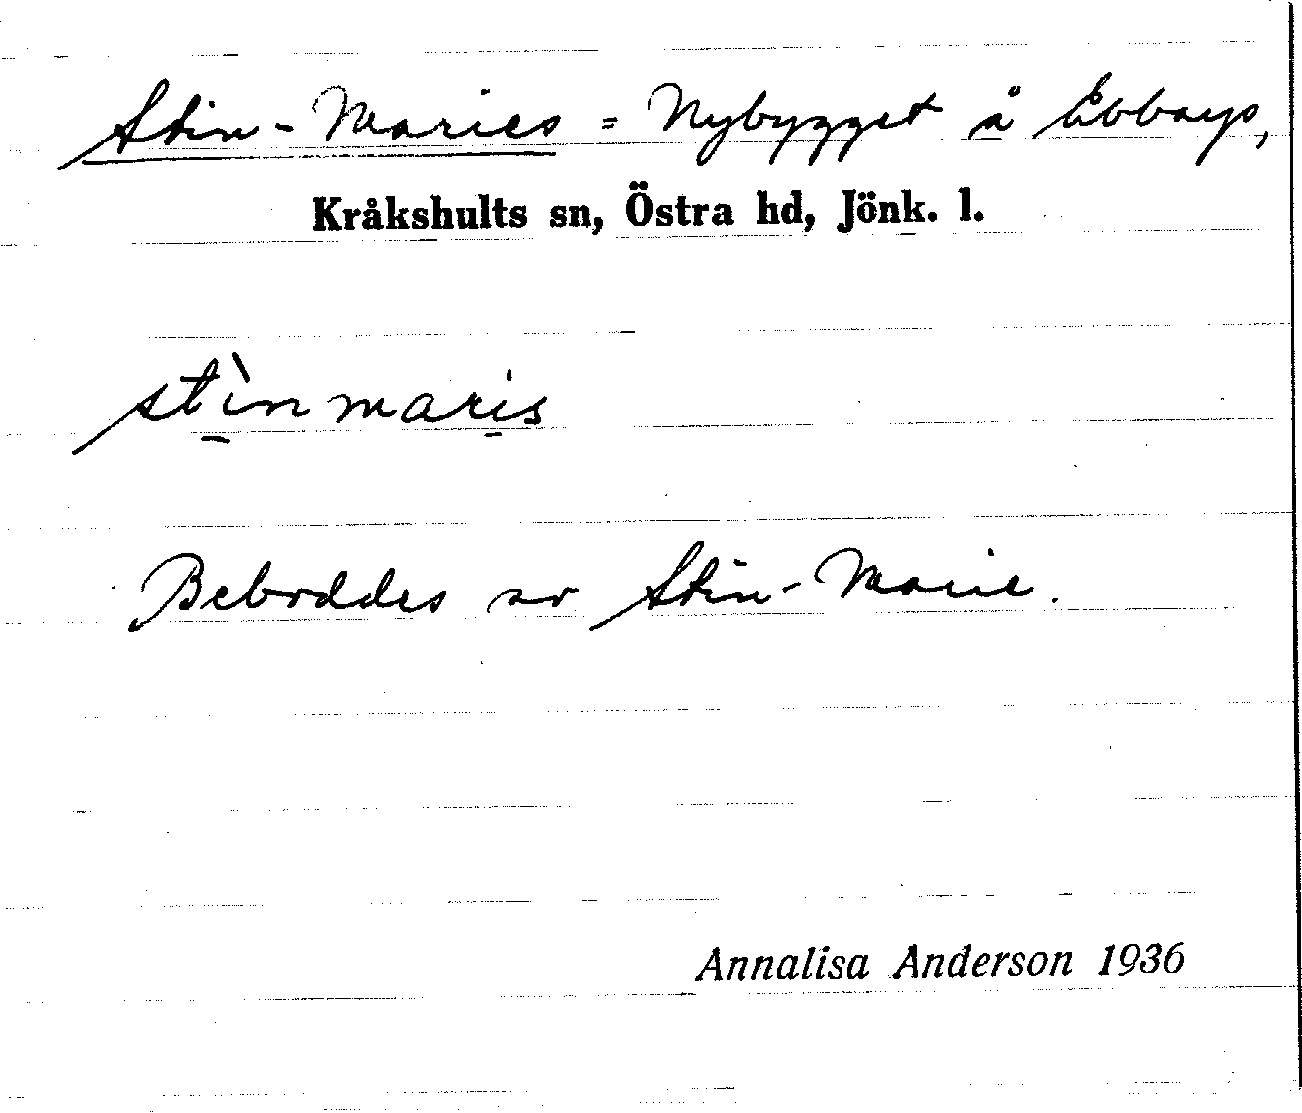 Stin-Maries = Nybygget å Åbbarp,
Kråkshults sn, Östra hd, Jönk. l.
stìnmaris
Beboddes av Stin-Marie.
Annalisa Anderson 1936